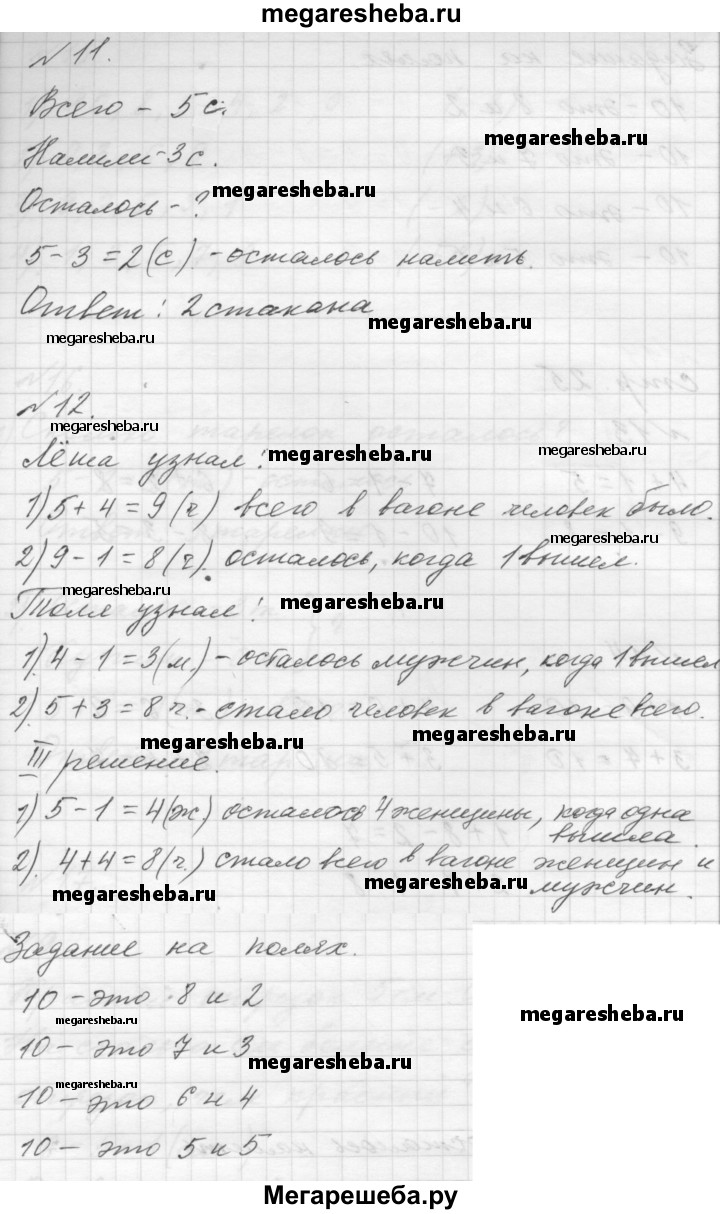 megaresheba.ru
№ 11.
Всего – 5 с.
megaresheba.ru
Налили – 3 с.
megaresheba.ru
Осталось – ?
5 – 3 = 2 (с) – осталось налить.
Ответ: 2 стакана
megaresheba.ru
megaresheba.ru
№ 12.
megaresheba.ru
Лёша узнал:
megaresheba.ru
1) 5 + 4 = 9 (ч) всего в вагоне человек было.
megaresheba.ru
2) 9 – 1 = 8 (ч). осталось, когда 1 вышел.
megaresheba.ru
Толя узнал:
megaresheba.ru
1). 4 – 1 = 3 (м) – осталось мужчин, когда 1 вышел
2). 5 + 3 = 8 ч. – стало человек в вагоне всего.
megaresheba.ru
megaresheba.ru
III решение.
1) 5 – 1 = 4 (ж) осталось 4 женщины, когда одна
вышла.
2). 4 + 4 = 8 (ч.) стало всего в вагоне женщин и
мужчин.
megaresheba.ru
megaresheba.ru
Задание на полях.
10 – это 8 и 2
megaresheba.ru
megaresheba.ru
10 – это 7 и 3
megaresheba.ru
megaresheba.ru
10 – это 6 и 4
10 – это 5 и 5
Мегарешеба.ру